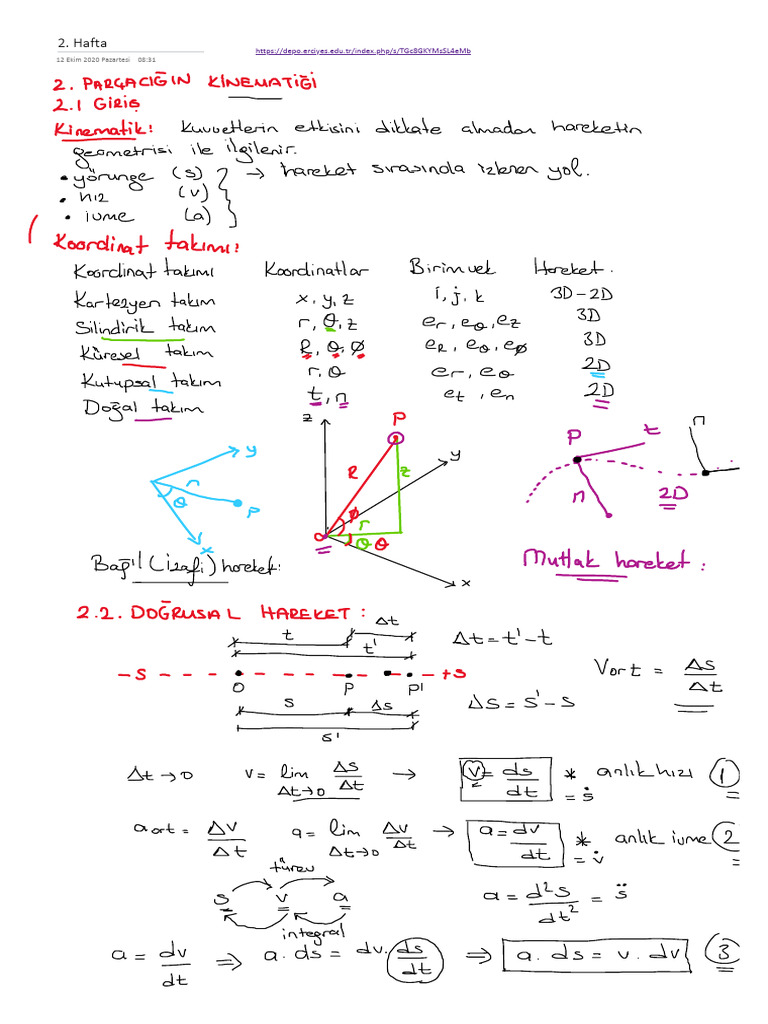 2. Hafta
https://depo.erciyes.edu.tr/index.php/s/TGc8GKYMsSL4eMb
12 Ekim 2020 Pazartesi 08:31
2. PARÇACIĞIN KİNEMATİĞİ
2.1 GİRİŞ
Kinematik: Kuvvetlerin etkisini dikkate almadan hareketin
geometrisi ile ilgilenir.
• yörünge (s) → hareket sırasında izlenen yol.
• hız (v)
• ivme (a)
Koordinat takımı:
Koordinat takımı Koordinatlar Birim vek Hareket.
Kartezyen takım x, y, z i, j, k 3D-2D
Silindirik takım r, θ, z er, eθ, ez 3D
Küresel takım R, θ, ø eR, eθ, eø 3D
Kutupsal takım r, θ er, eθ 2D
Doğal takım t, n et, en 2D
z P y
R z ø r θ θ x
y r θ P x
P t n 2D n
Bağıl (izafi) hareket:
Mutlak hareket:
2.2. DOĞRUSAL HAREKET:
t Δt t'
Δt = t' - t
-s O P P' +s
Vort = Δs/Δt
s Δs s'
Δs = s' - s
Δt→0 v = lim Δt→0 Δs/Δt → v = ds/dt = ṡ * anlık hızı 1
aort = Δv/Δt a = lim Δt→0 Δv/Δt → a = dv/dt = v̇ * anlık ivme 2
türev
s v a
integral
a = d²s/dt² = s̈
a = dv/dt ⇒ a.ds = dv.ds/dt ⇒ a.ds = v.dv 3